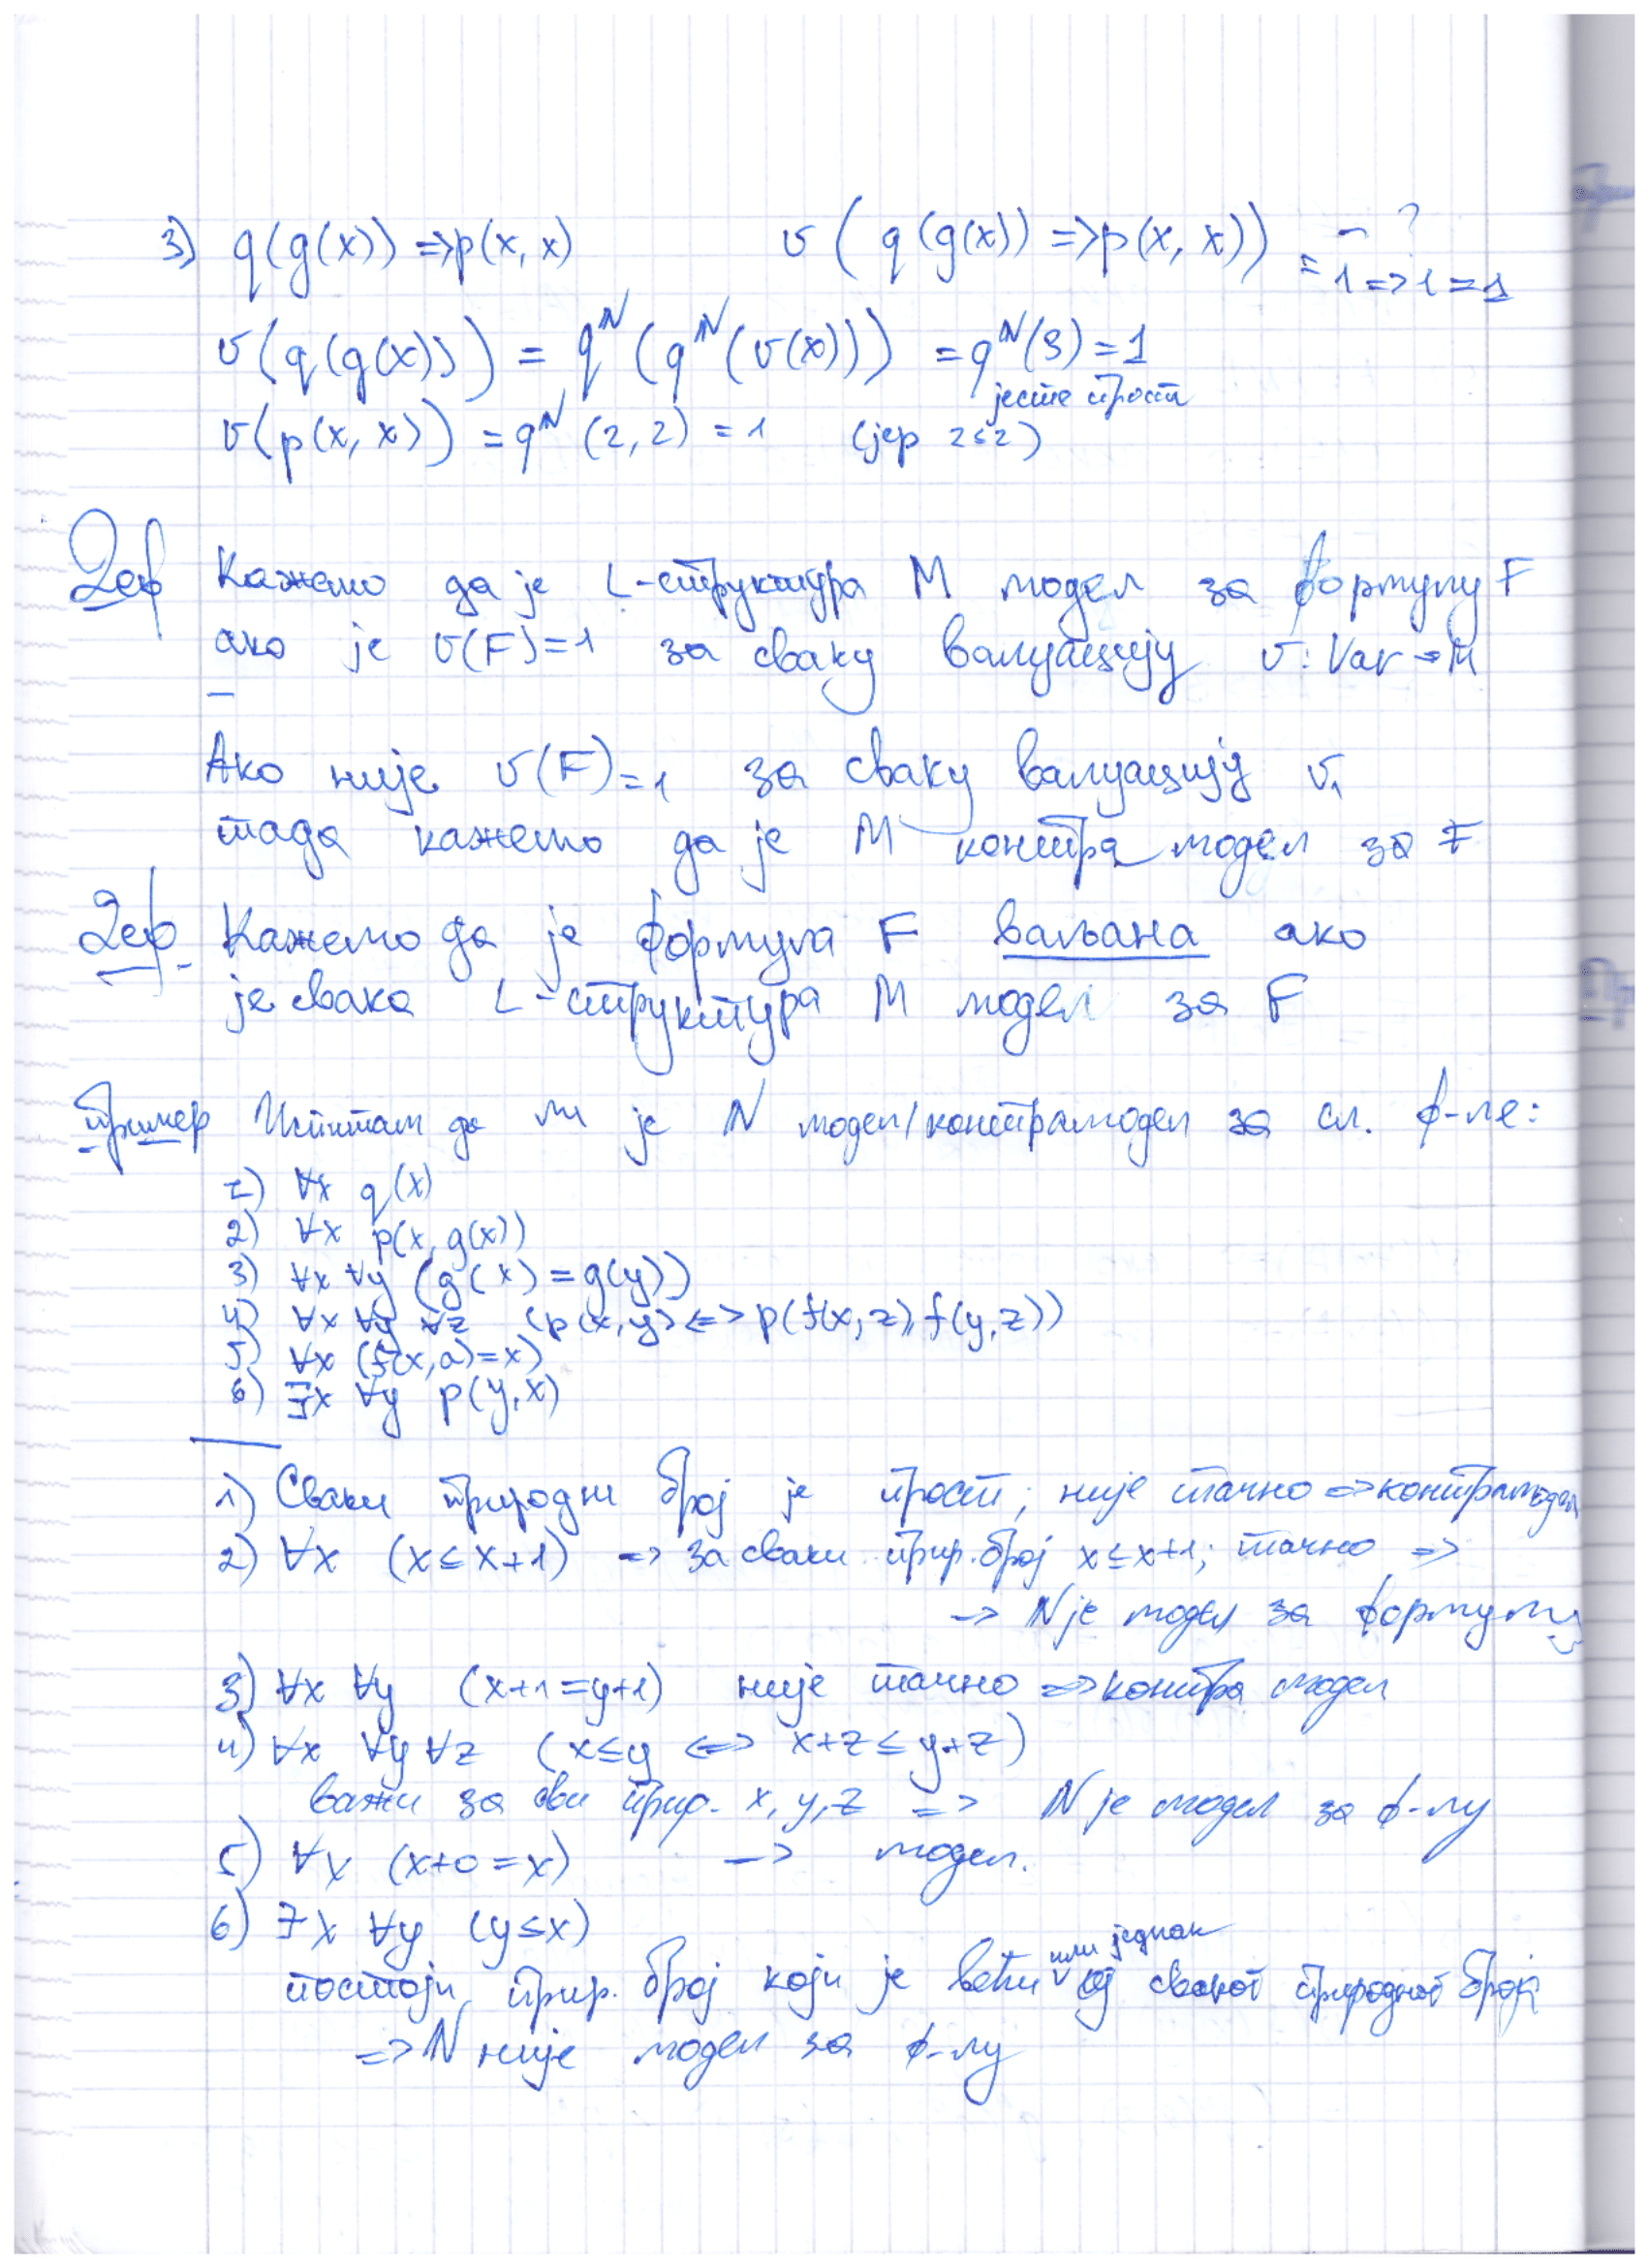 3) q(g(x)) => p(x, x)     v( q(g(x)) => p(x, x)) = ?
= 1 => 1 = 1
v(q(g(x))) = q^N(g^N(v(x))) = q^N(3) = 1
јесте прост
v(p(x, x)) = q^N (2, 2) = 1     (јер 2≤2)
Деф Кажемо да је L-структура M модел за формулу F
ако је v(F)=1 за сваку валуацију v: Var → M
Ако није v(F)=1 за сваку валуацију v,
тада кажемо да је M контра модел за F
Деф. Кажемо да је формула F ваљана ако
је свака L-структура M модел за F
Пример Испитати да ли је N модел/контрамодел за сл. ф-ле:
1) ∀x q(x)
2) ∀x p(x, g(x))
3) ∀x ∀y (g(x) = g(y))
4) ∀x ∀y ∀z (p(x, y) <=> p(f(x, z), f(y, z)))
5) ∀x (f(x, a) = x)
6) ∃x ∀y p(y, x)
1) Сваки природни број је прост; није тачно => контрамодел
2) ∀x (x ≤ x+1) => за сваки прир. број x ≤ x+1; тачно =>
-> N је модел за формулу
3) ∀x ∀y (x+1 = y+1) није тачно => контра модел
4) ∀x ∀y ∀z (x≤y <=> x+z ≤ y+z)
важи за сви прир. x, y, z => N је модел за ф-лу
5) ∀x (x+0 = x) -> модел.
6) ∃x ∀y (y≤x)
постоји прир. број који је већи или једнак од сваког природног броја
=> N није модел за ф-лу